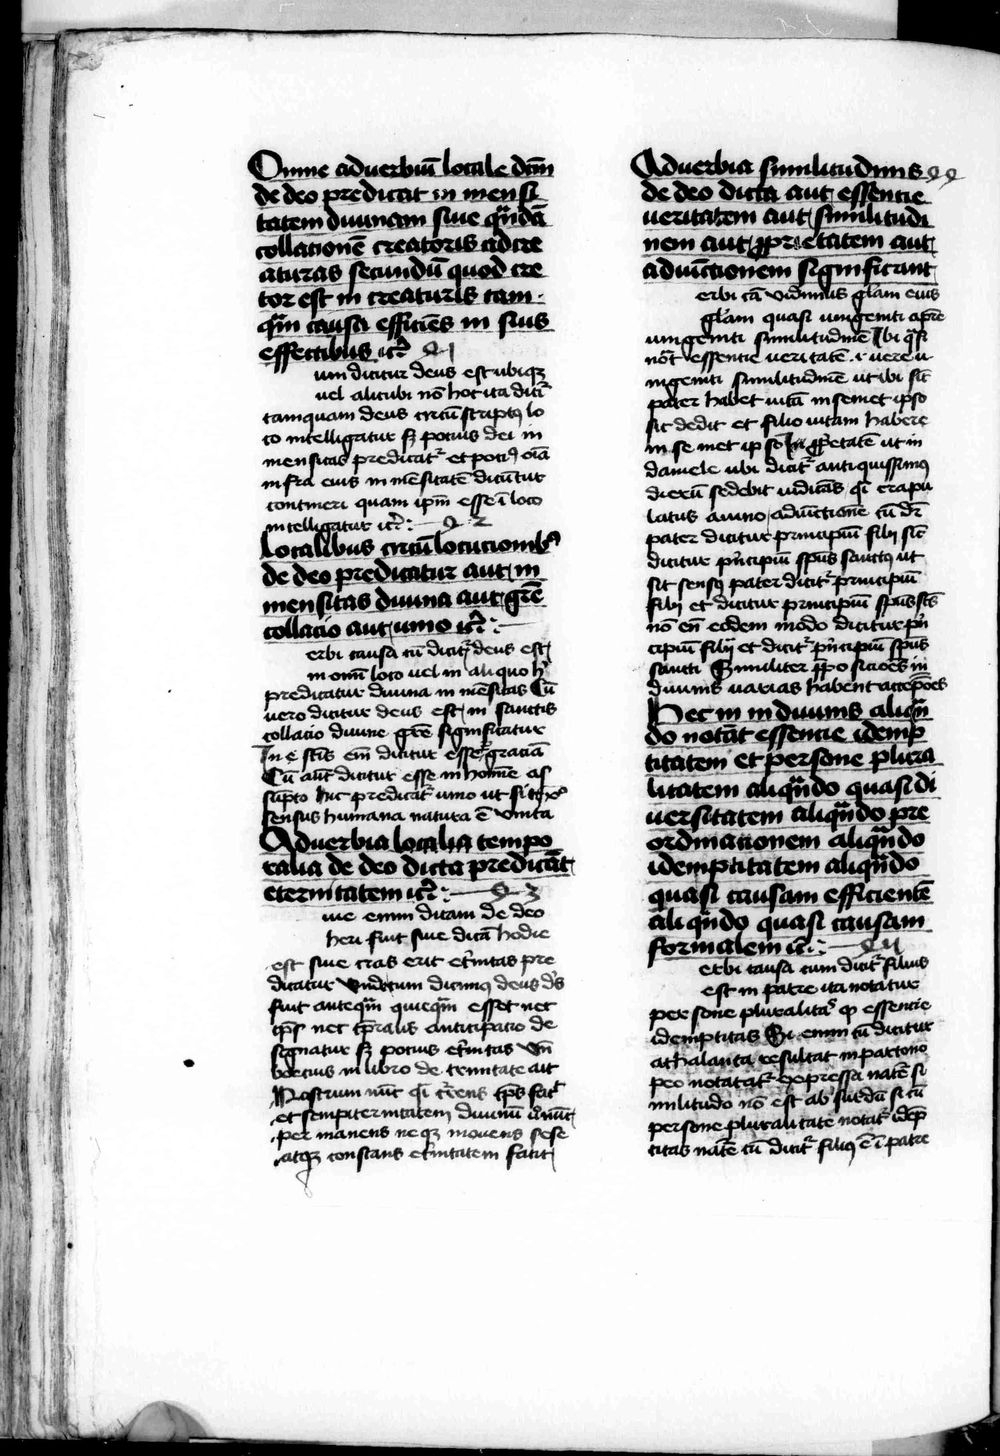 Omne aduerbiū locale dc̄m
de deo predicat in mensi
tatem diuinam siue qͣndā
collationē creatoris ad cre
aturas secundū quod cre
tor est in creaturis tam
qͣm causa efficiēs in suis
effectibus ⁊c̄
um dicitur deus est ubiqꝫ
uel alicubi nō hoc ita dicit̄
tamquam deus circūscriptꝰ lo
co intelligatur sꝫ potius dei in
mensitas predicat̄ et potiꝰ oīa
infra eius in mēsitatē dicūtur
contineri quam ipm̄ esse ī loco
intelligatur ⁊c̄
Localibus circūlocucionibꝰ
de deo predicatur aut in
mensitas diuina aut gr̄e
collacio aut unio ⁊c̄
erbi causa cū dicit̄ deus est
in omī loco uel in aliquo hͥ
predicatur diuina in mēsitas Cū
uero dicitur deus est in sanctis
collacio diuine gr̄e significatur
In e stīs em̄ dicitur esse graciā
Cū aūt dicitur esse in homīe as
sūpto hic predicat̄ unio ut sit
sensus humana natura ē unita
Aduerbia localia tempo
ralia de deo dicta predicāt
eternitatem ⁊c̄
iue enim dicam de deo
heri fuit siue dicā hodie
est siue cras erit et̄nitas pre
dicatur Unde cum dicimꝰ deus
fuit anteqͣm quicqͣm esset nec
tp̄s nec tp̄ralis anticipatio de
signatur sꝫ potius et̄nitas Un̄
boecius in libro de trinitate ait
Nostrum nūc qͥ currens tp̄s facit
et sempiternitatem diuinū ū nūc
per manens neqꝫ mouens sese
atqꝫ constans et̄nitatem facit
Aduerbia similitudinis
de deo dicta aut essencie
ueritatem aut similitudi
nem aut ꝓprietatem aut
adiūctionem significant
erbi cā vidimus glām eius
glām quasi unigeniti a pr̄e
unigeniti similitudinē Ibi qͣsi
nōt essencie ueritatē .i. uere u
nigeniti similitudinē ut ibi sic̄
pater habet uitā in semet ipso
sic dedit et filio uitam habere
in se met ip so In ꝓprietatē ut in
daniele ubi dicit̄ antiquissimꝰ
dierū sedebit iudicās qͥ crapu
latus a uino adiūctionē cū dr̄
pater dicitur principiū filij sic̄
dicitur pͥncipiū spūs sanctꝰ ut
sit sensꝰ pater dicit̄ principiū
filij et dicitur principiū spūs scī
nō em̄ eodem modo dicitur pͥn
cipiū filij et dicit̄ pͥncipiū spūs
sancti Similiter ꝓposicioēs in
diuinis uarias habent accepcōes
Hec in in diuinis aliqn̄
do notāt essencie idemp
titatem et persone plura
litatem aliqn̄do quasi di
uersitatem aliqn̄do pre
ordinationem aliqn̄do
idemptitatem aliqn̄do
quasi causam efficientē
aliqn̄do quasi causam
formalem ⁊c̄
erbi causa cum dicit̄ filius
est in patre ita notatur
persone pluralitas qꝫ essencie
idemptitas Si enim cū dicitur
athalanta resultat in partono
peo notatat̄ expressa nat̄e si
militudo nō est absurdū si cū
persone pluralitate notat̄ idēp
titas nat̄e cū dicit̄ filiꝰ ē ī patre